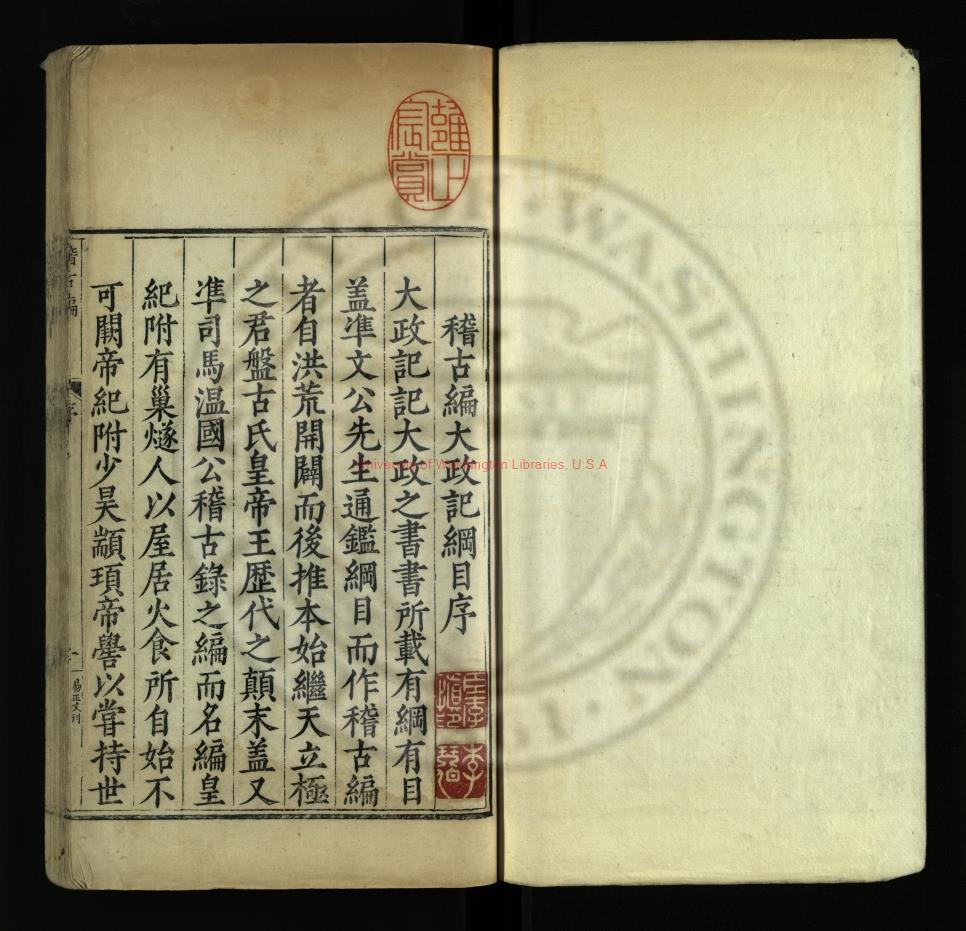 稽古編大政記綱目序
大政記記大政之書書所載有綱有目
盖凖文公先生通鑑綱目而作稽古編
者自洪荒開闢而後推本始繼天立極
之君盤古氏皇帝王歴代之顛末盖又
凖司馬温國公稽古錄之編而名編皇
紀附有巢燧人以屋居火食所自始不
可闕帝紀附少昊顓頊帝嚳以甞持世
稽古編
序
易正文刊
雒正
宸賞
University of Washington Libraries, U.S.A
WASHINGTON